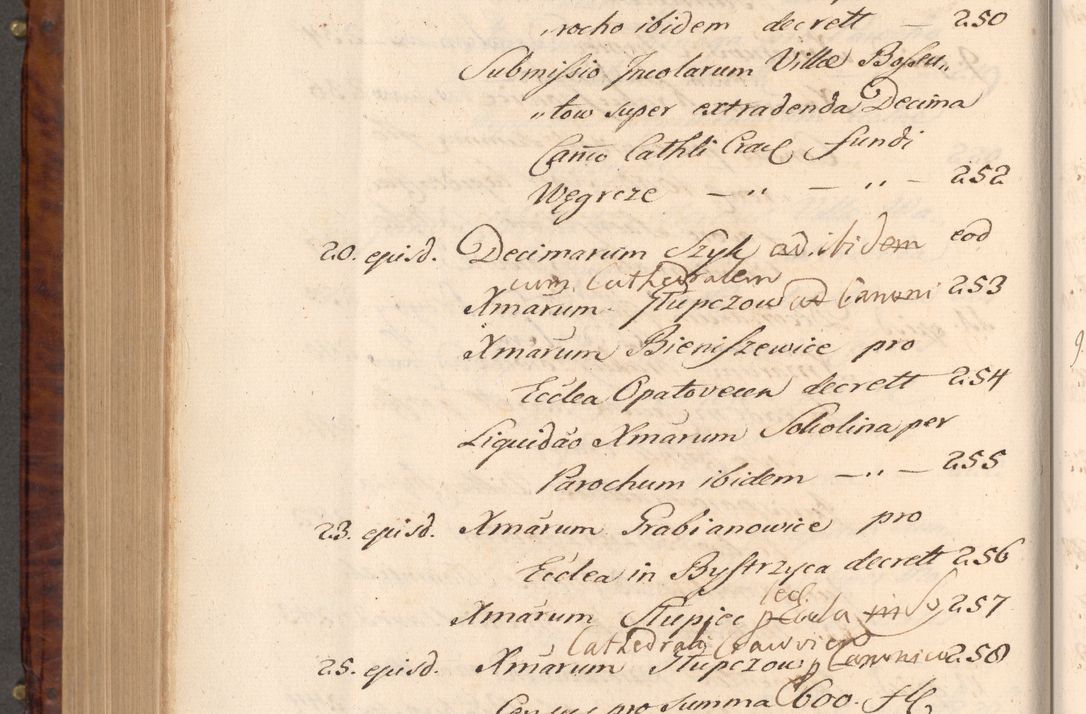 rocho ibidem decrett — 250
Submissio Incolarum Villæ Bossu„
„tow super extradenda Decima
Canco Cathli Crac fundi
Węgrcze — „ — „ — 252
20. ejusd. Decimarum Szyk ad ibidem eod
cum Cathedralem
Xmarum Słupczow ad Canoni 253
Xmarum Bieniszewice pro
Ecclea Opatovecen decrett 254
Liquidao Xmarum Sokolina per
Parochum ibidem — „ — 255
23. ejusd. Xmarum Grabianowice pro
Ecclea in Bystrzyca decrett 256
Xmarum Słupiec 257
Cathedrali
25. ejusd. Xmarum Słupczow p Canonico 258
Census pro summa 600. fl